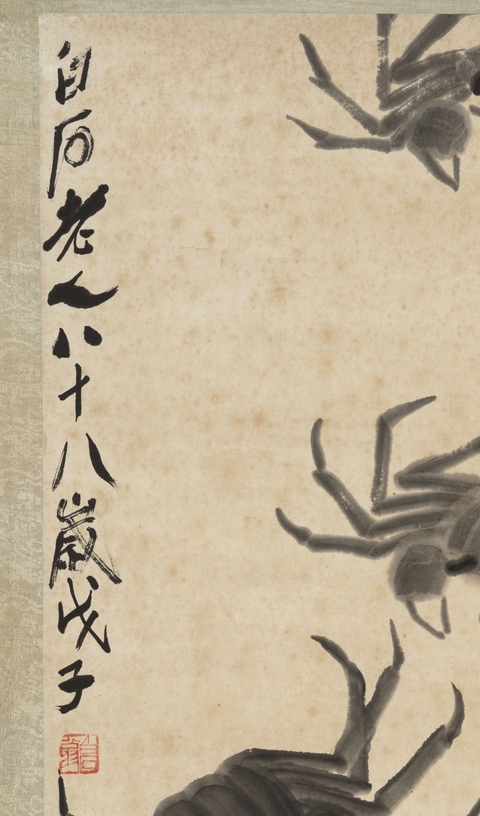 白石老人八十八歲戊子